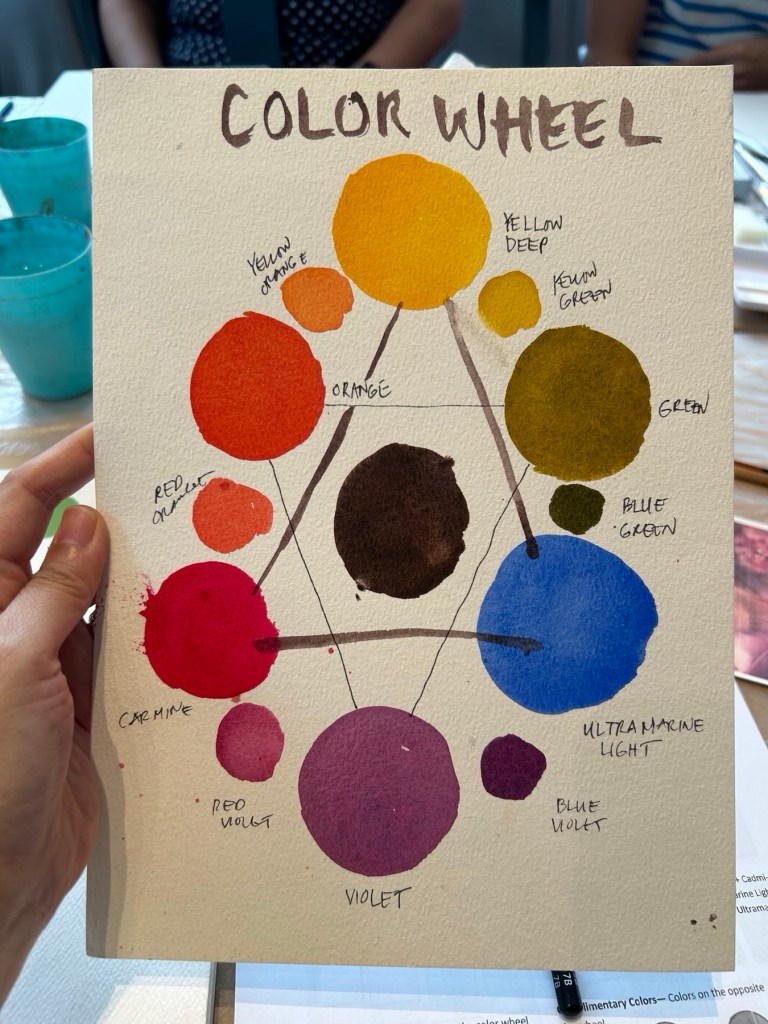 COLOR WHEEL
YELLOW
DEEP
YELLOW
ORANGE
YELLOW
GREEN
ORANGE
GREEN
RED
ORANGE
BLUE
GREEN
CARMINE
ULTRAMARINE
LIGHT
RED
VIOLET
BLUE
VIOLET
VIOLET
+ Cadmi-
arine Ligh
Ultrama
7B
limentary Colors— Colors on the opposite
color wheel
heel